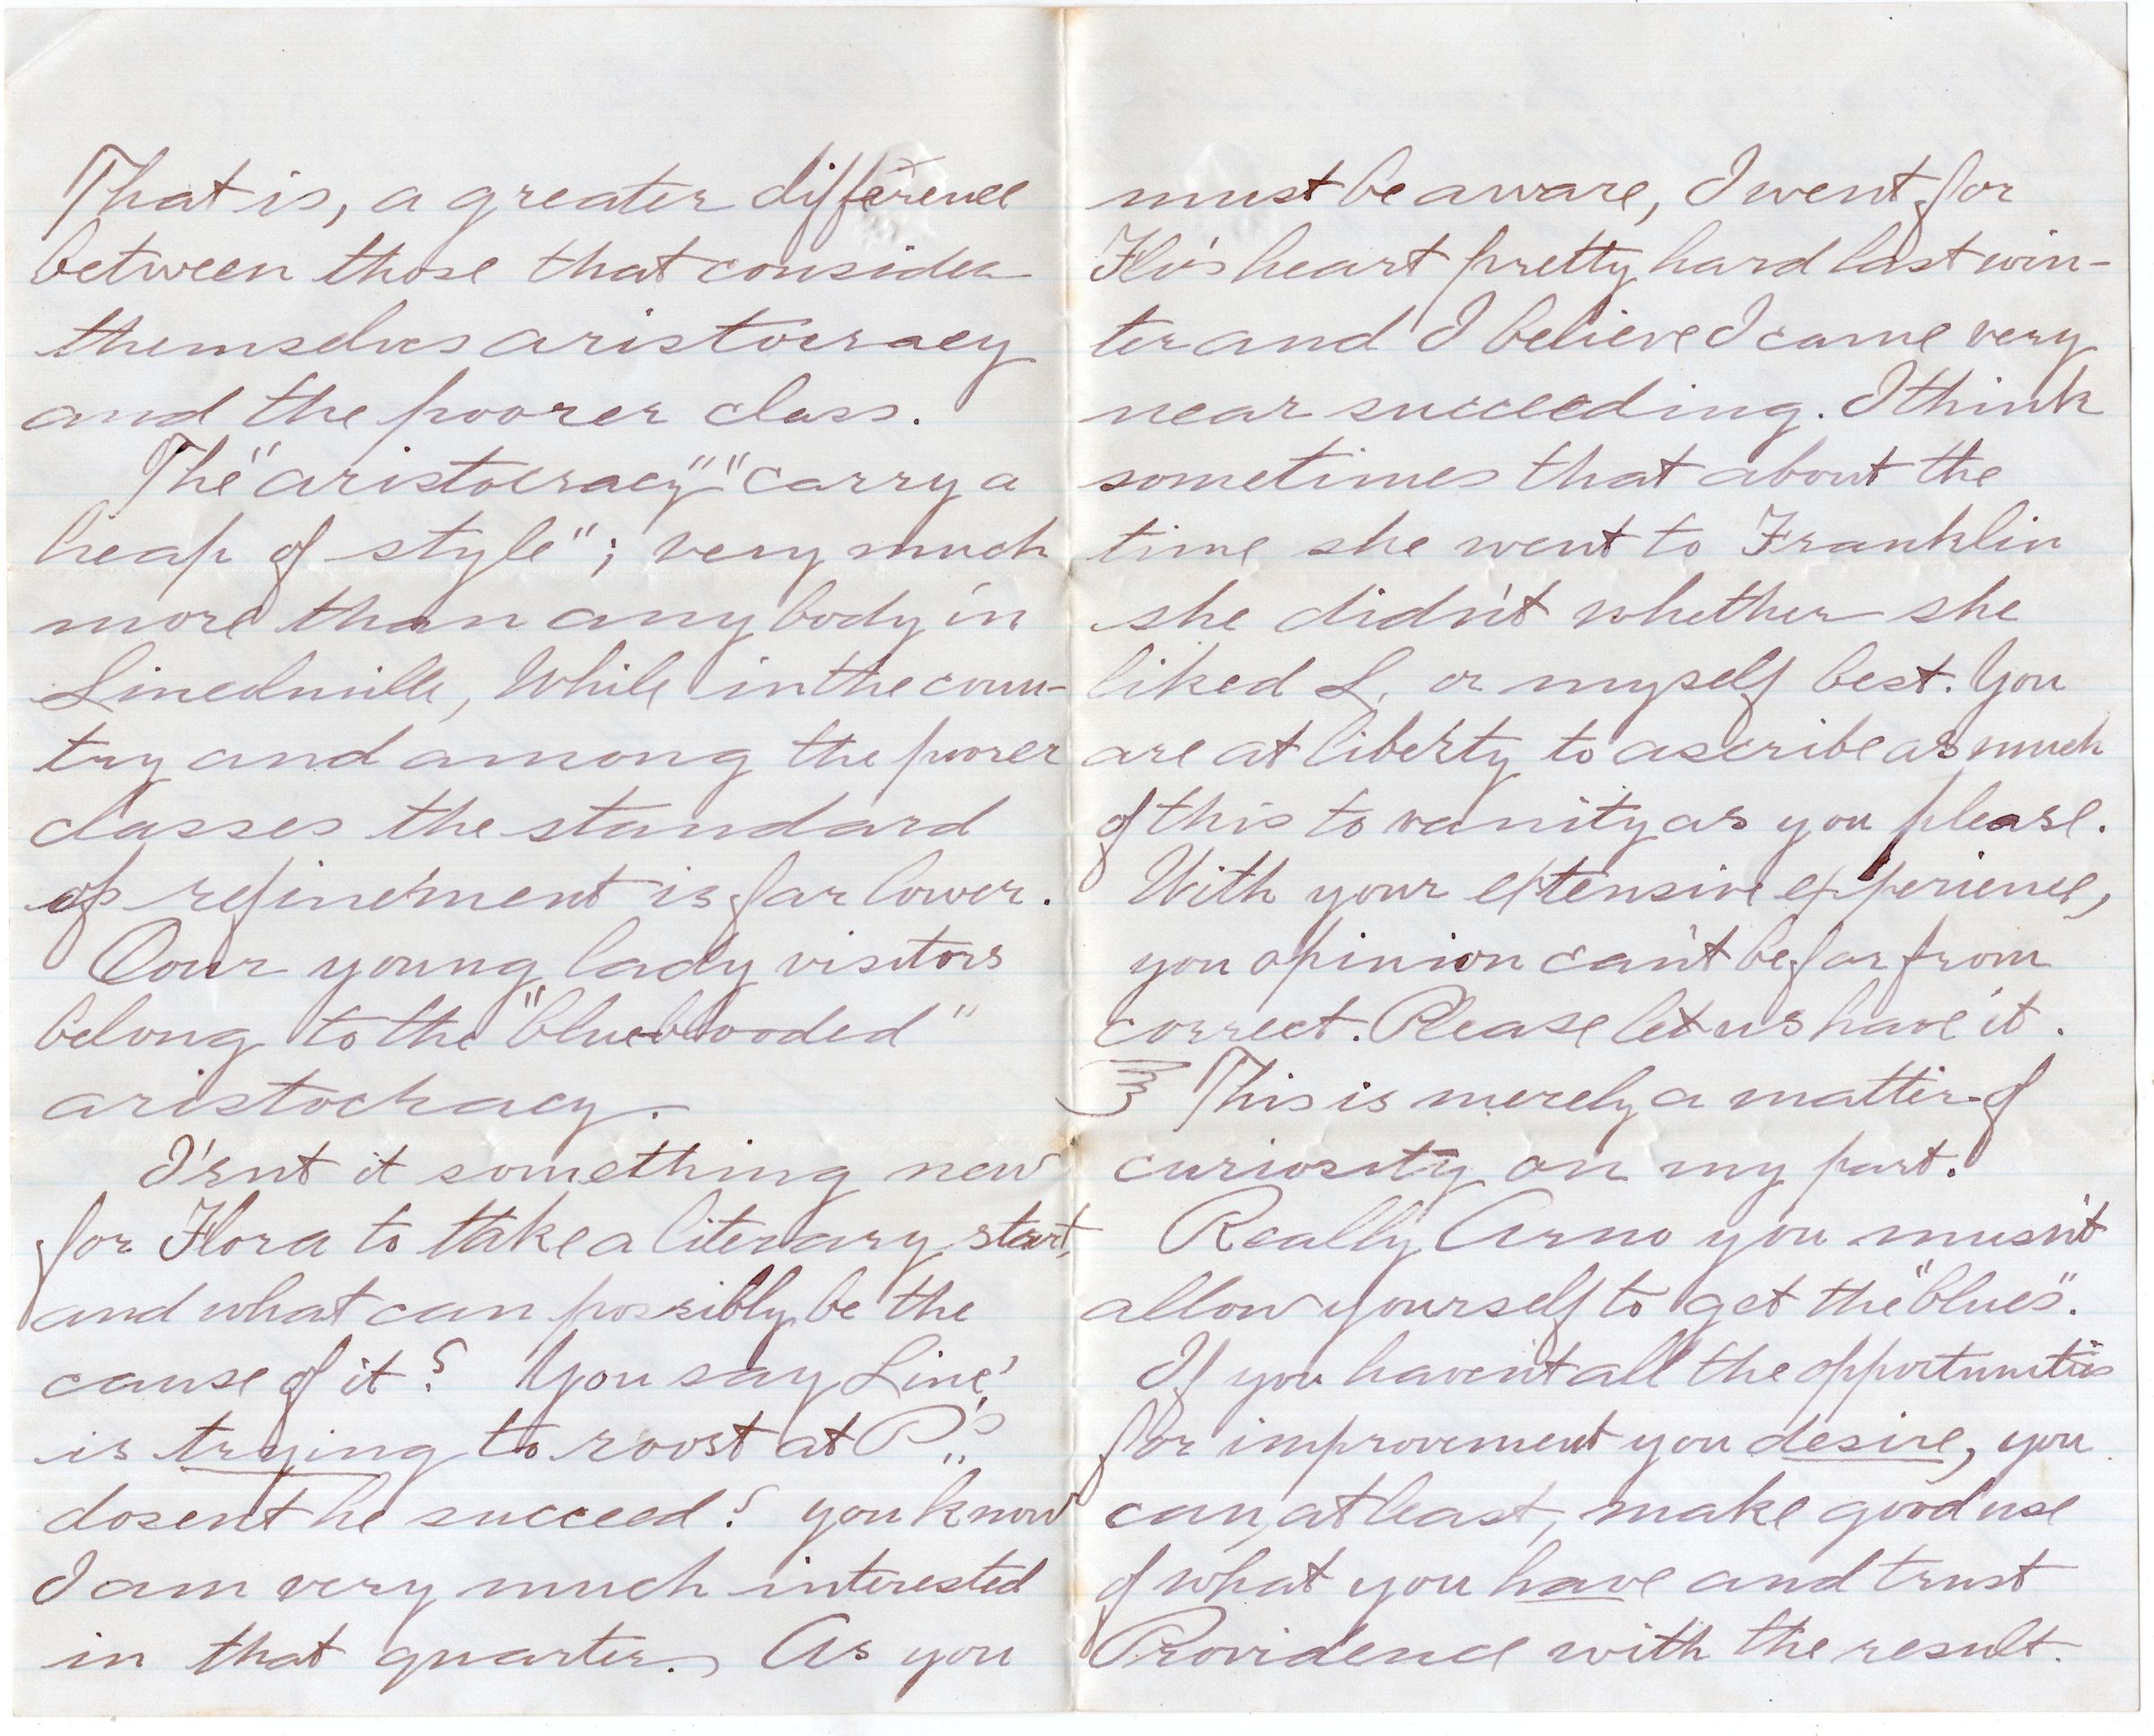 That is, a greater difference
between those that consider
themselves aristocracy
and the poorer class.
The "aristocracy" "carry a
heap of style"; very much
more than any body in
Linedville, While in the coun-
try and among the poorer
classes the standard
of refinement is far lower.
Our young lady visitors
belong to the "blueblooded"
aristocracy.
I'snt it something new
for Flora to take a literary start,
and what can possibly be the
cause of it? You say Line,
is trying to roost at P.'s
dosent he succeed? you know
I am very much interested
in that quarter. As you
must be aware, I went for
Flo's heart pretty hard last win-
ter and I believe I came very
near succeeding. I think
sometimes that about the
time she went to Franklin
she didn't whether she
liked L. or myself best. You
are at liberty to ascribe as much
of this to vanity as you please.
With your extensive experience,
you opinion can't be far from
correct. Please let us have it.
This is merely a matter of
curiosity on my part.
Really Arno you musn't
allow yourself to get the "blues".
If you haven't all the opportunities
for improvement you desire, you
can, at least, make good use
of what you have and trust
Providence with the result.